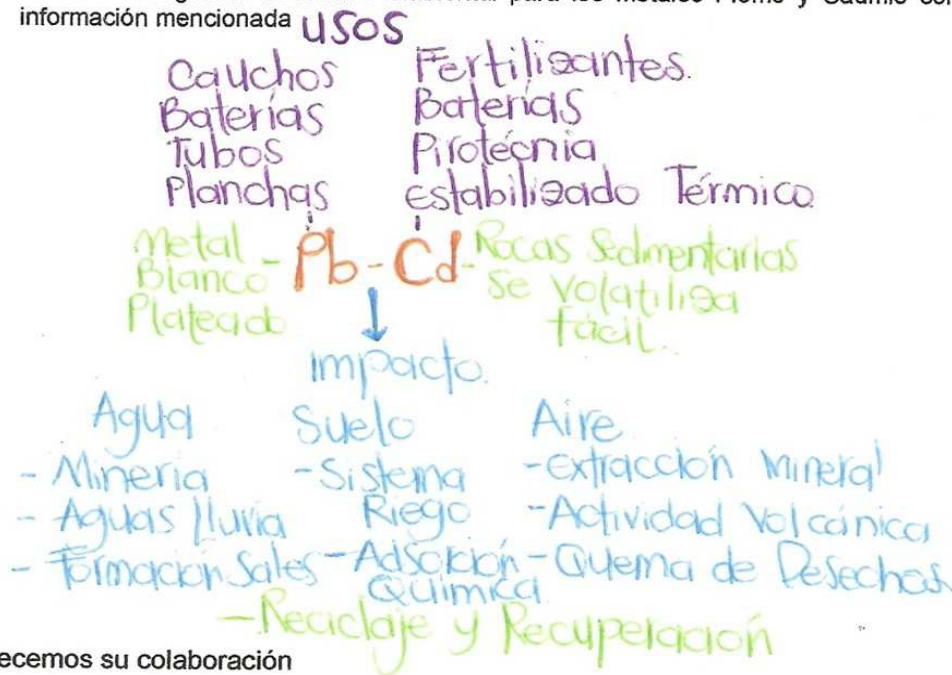 información mencionada
USOS
Cauchos
Baterías
Tubos
Planchas
Fertilizantes.
Baterías
Pirotécnia
estabilizado Térmico.
Metal
Blanco
Plateado
- Pb - Cd -
Rocas Sedimentarias
Se volatiliza
fácil..
impacto.
Agua
- Minería
- Aguas lluvia
- Formación Sales
Suelo
- Sistema
Riego
- Adsorción
Química
Aire
- extracción Mineral
- Actividad Volcánica
- Quema de Desechos
- Reciclaje y Recuperación
ecemos su colaboración